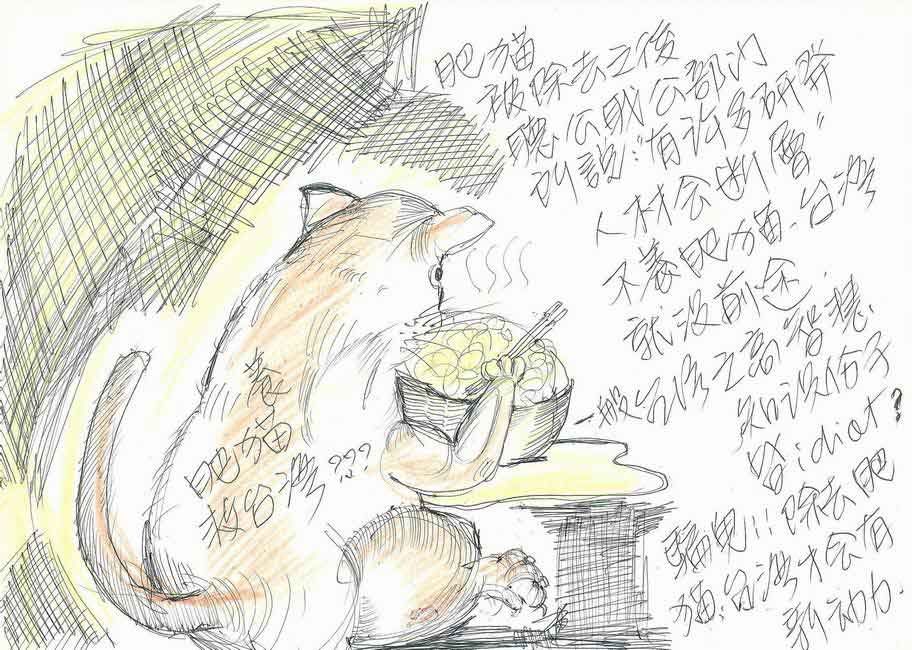 肥猫
被除去之後
聽公民公部门
別說:"有许多研发
人材会断層"
不養肥猫、台湾
就没前途、
一般台湾之高智慧、
知识份子
皆idiot?
騙鬼!!!除去肥
猫、台湾才会有
新动力.
養
肥猫
救台湾???